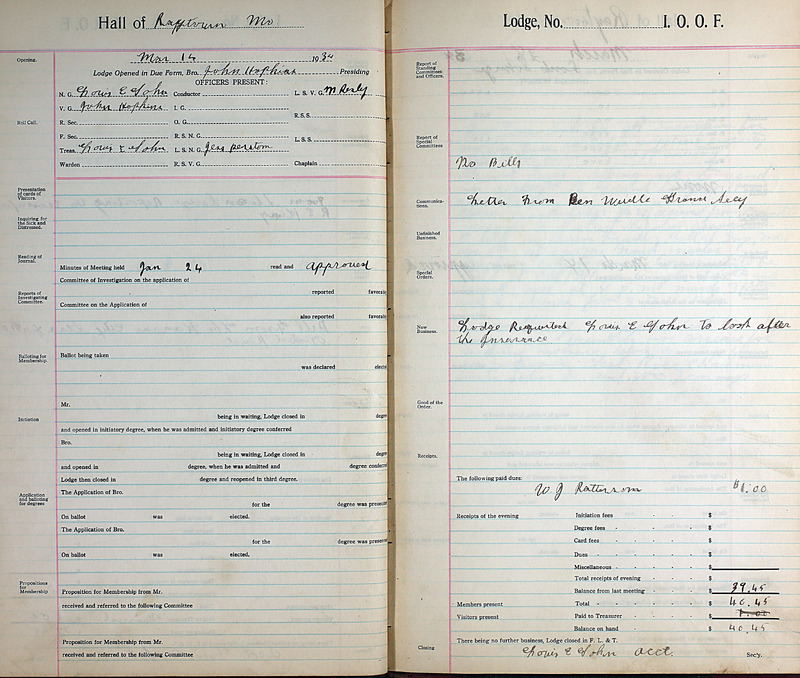 Hall of Raytown Mo Lodge, No. I. O. O. F.
Opening.
Mar 14 1934
Lodge Opened in Due Form, Bro. John Hopkins Presiding
OFFICERS PRESENT:
N. G. Louis E John Conductor L. S. V. G.
V. G. John Hopkins I. G.
R. S. S.
Roll Call.
R. Sec. O. G.
F. Sec. R. S. N. G.
L. S. S.
Treas. Louis E John L. S. N. G. Jess
Warden R. S. V. G. Chaplain
Presentation of cards of Visitors.
Inquiring for the Sick and Distressed.
Reading of Journal.
Minutes of Meeting held Jan 24 read and approved
Committee of Investigation on the application of
Reports of Investigating Committee.
reported favorable
Committee on the Application of
also reported favorable
Balloting for Membership.
Ballot being taken
was declared elected
Mr.
Initiation
being in waiting, Lodge closed in degree
and opened in initiatory degree, when he was admitted and initiatory degree conferred
Bro.
being in waiting, Lodge closed in degree
and opened in degree, when he was admitted and degree conferre
Lodge then closed in degree and reopened in third degree.
Application and balloting for degrees
The Application of Bro.
for the degree was presente
On ballot was elected.
The Application of Bro.
for the degree was presente
On ballot was elected.
Propositions for Membership
Proposition for Membership from Mr.
received and referred to the following Committee
Proposition for Membership from Mr.
received and referred to the following Committee
Report of Standing Committees and Officers.
Report of Special Committees
No Bills
Communications.
Letter From Ben Weidle Grand Secy
Unfinished Business.
Special Orders.
New Business.
Lodge Requested Louis E John to look after
the Insurance
Good of the Order.
Receipts.
The following paid dues:
W J Patterson $1.00
Receipts of the evening Initiation fees $
Degree fees $
Card fees $
Dues $
Miscellaneous $
Total receipts of evening $
Balance from last meeting $ 39.45
Members present Total $ 40.45
Visitors present Paid to Treasurer $ 1.00
Balance on hand $ 40.45
There being no further business, Lodge closed in F. L. & T.
Closing
Louis E John acct. Sec'y.